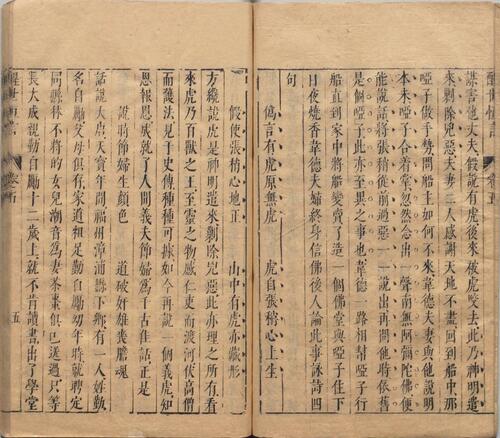 謀害他丈夫假說有虎後來被虎咬去此乃神明遣
來剿除兇惡夫妻二人感謝天地不盡回到船中那
啞子做手勢問船主如何不來韋德夫妻與他說明
本末啞子合着掌忽然念出一聲南無阿彌陀佛便
能說話將張稍從前過惡一一說出再問他時依舊
是個啞子此亦至異之事也韋德一路相幫啞子行
船直到家中將船變賣了造一個佛堂與啞子住下
日夜燒香韋德夫婦終身信佛後人論此事詠詩四
句
偽言有虎原無虎　虎自張稍心上生
假使張稍心地正　山中有虎亦藏形
方纔說虎是神明遣來剿除兇惡此亦理之所有看
來虎乃百獸之王至靈之物感仁吏而渡河伏高僧
而護法見于史傳種種可據如今再說一個義虎知
恩報恩成就了人間義夫節婦為千古佳話正是
說時節婦生顏色　道破奸雄喪膽魂
話說大唐天寶年間福州漳浦縣下鄉有一人姓勤
名自勵父母俱存家道粗足勤自勵幼年時就聘定
同縣林不將的女兒潮音為妻茶棗俱已送過只等
長大成親勤自勵十二歲上就不肯讀書出了學堂
醒世恒言
卷五
五